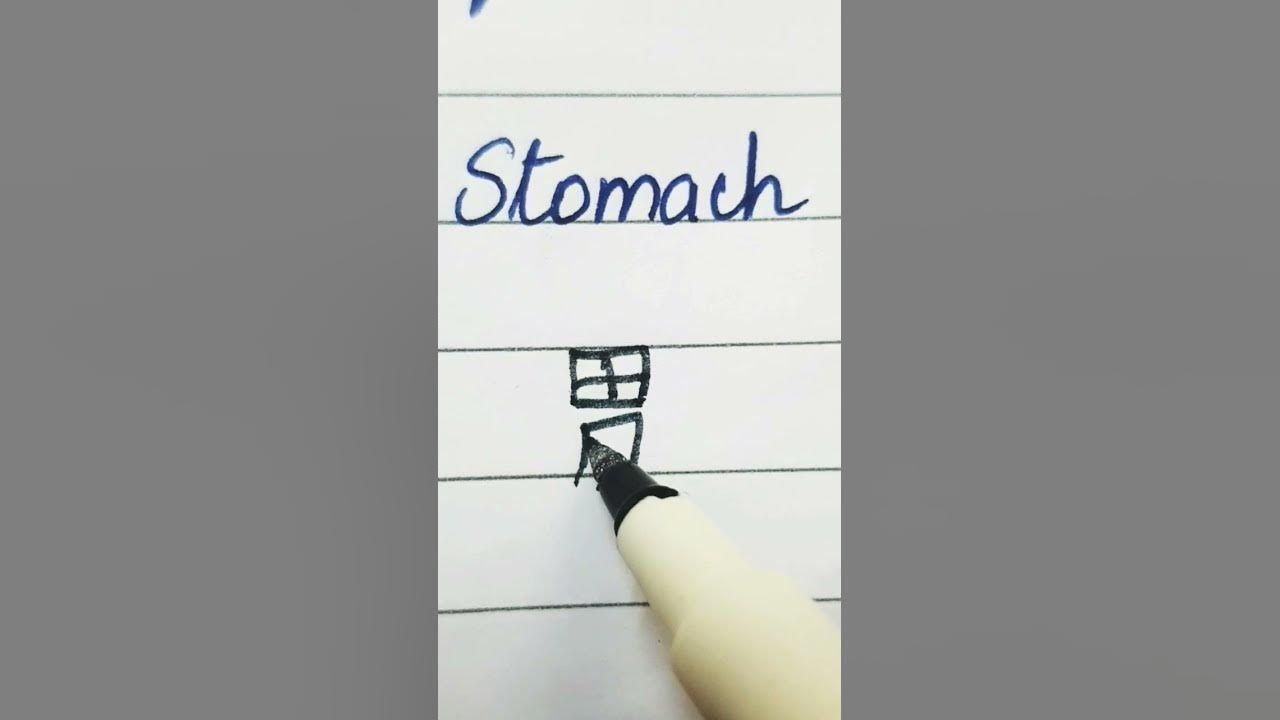 Stomach
胃